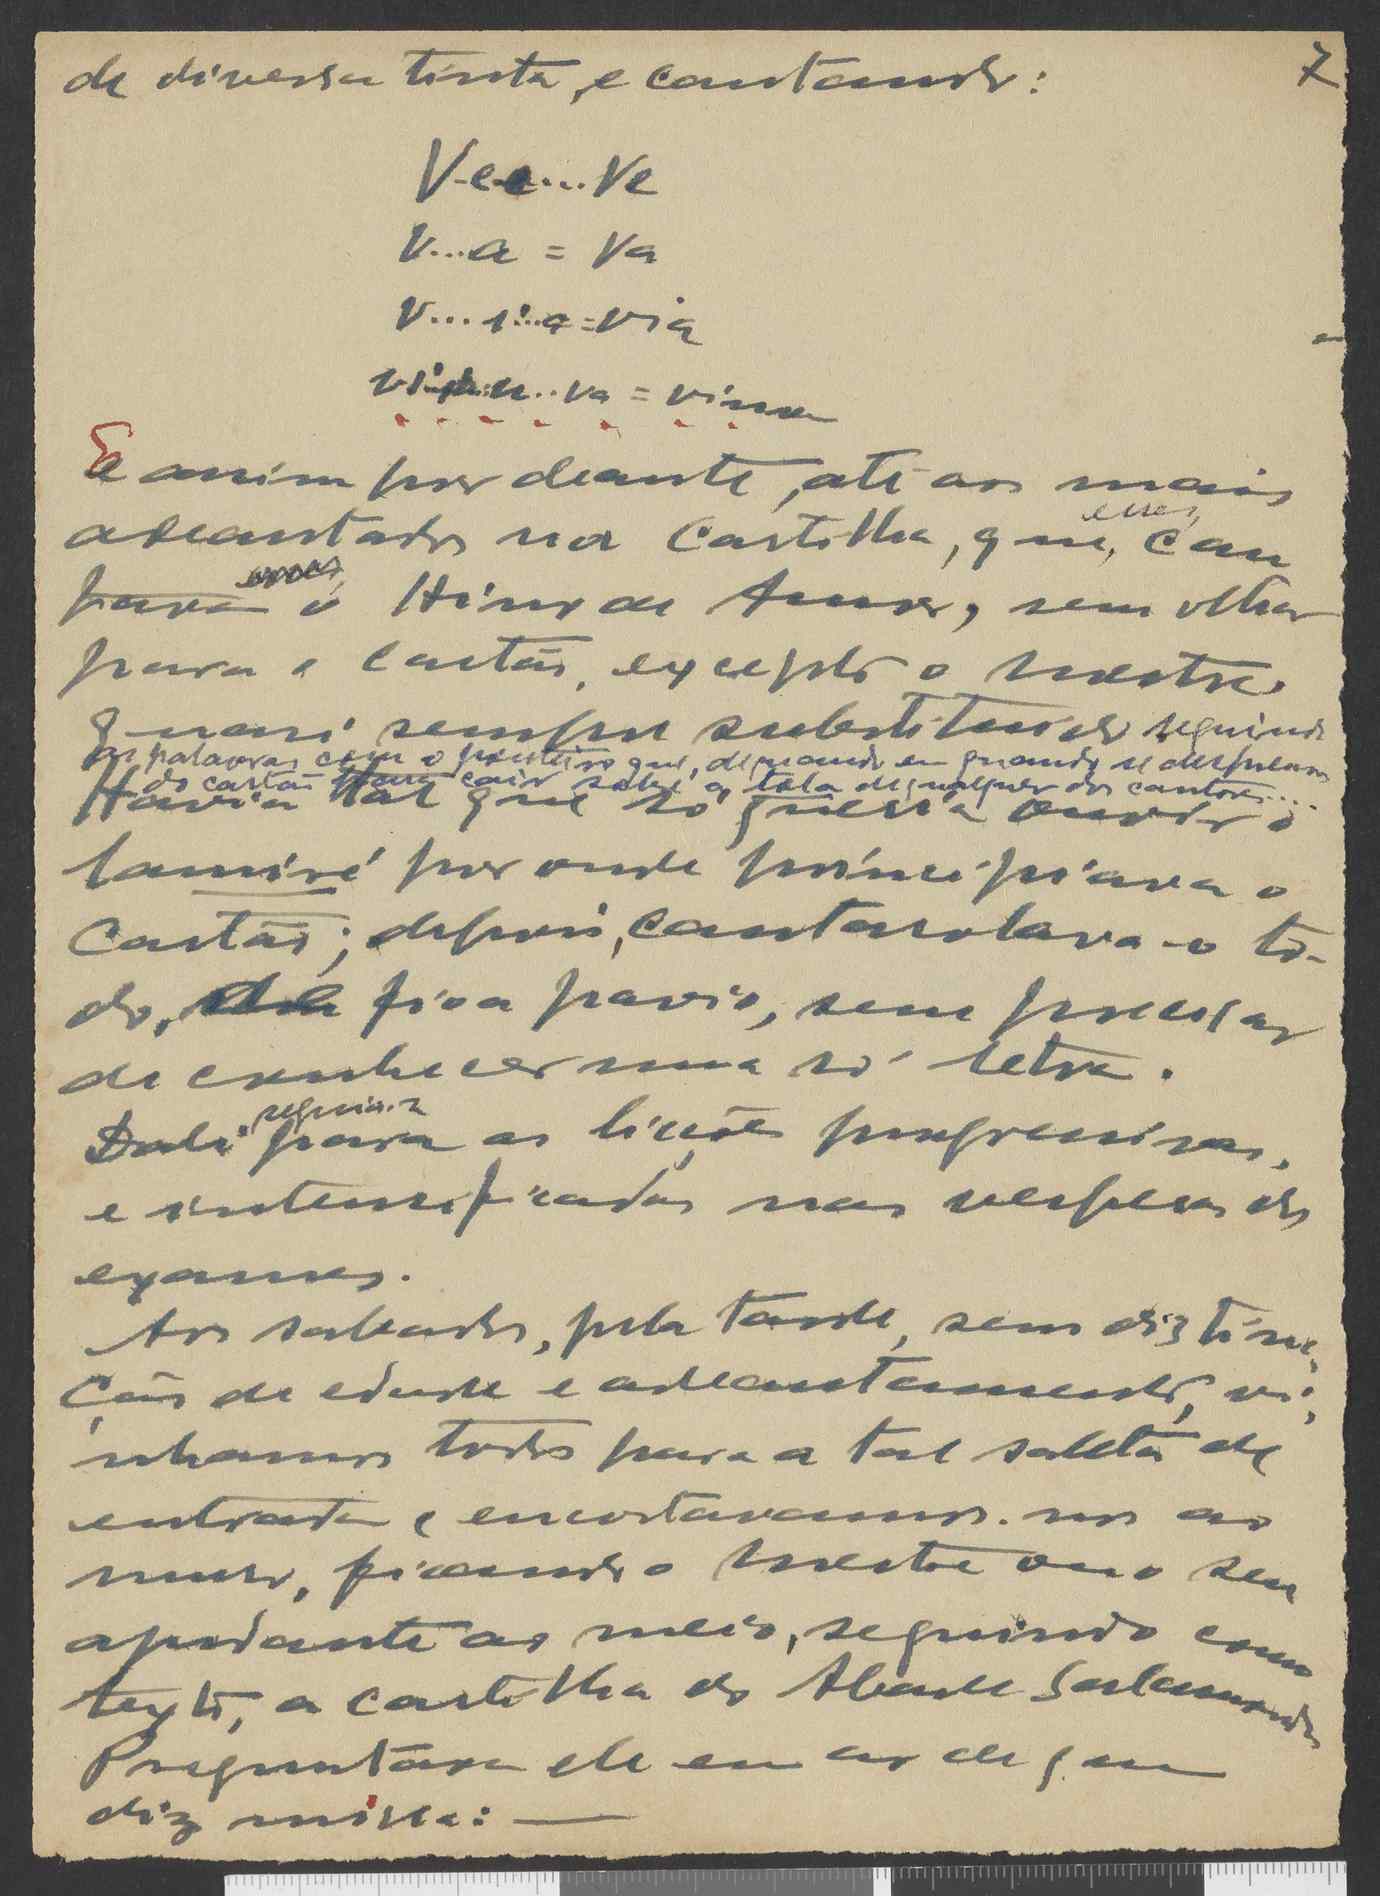 7
de diversa tinta, e cantando:
V-e-e....Ve
V...a = Va
V... i...a = via
vi... u..va = viuva
E assim por deante, até aos mais
adeantados na Cartilha, que, esses,
para o Hino de Amor, sem olhar
para o cartão, excepto o mestre
quasi sempre substituido seguindo
as palavras com o ponteiro que, de quando em quando se desprendia
do cartão para cair sobre a tola de qualquer dos cantores....
Havia tal que só queria ouvir o
lamiré por onde principiava o
Cartão; depois, cantarolava-o to-
do, fio a pavio, sem precisar
de conhecer uma só letra.
Dali seguia-se para as lições progressivas,
e intensificadas nas vesperas dos
exames.
Aos sabados, pela tarde, sem distin-
ção de edade e adeantamento, vi-
nhamos todos para a tal saleta de
entrada e encostavamos-nos ao
muro, ficando o mestre ou o seu
ajudante ao meio, seguindo como
texto, a cartilha do Abade Salamonde
Preguntava ele em ar de quem
diz missa: —